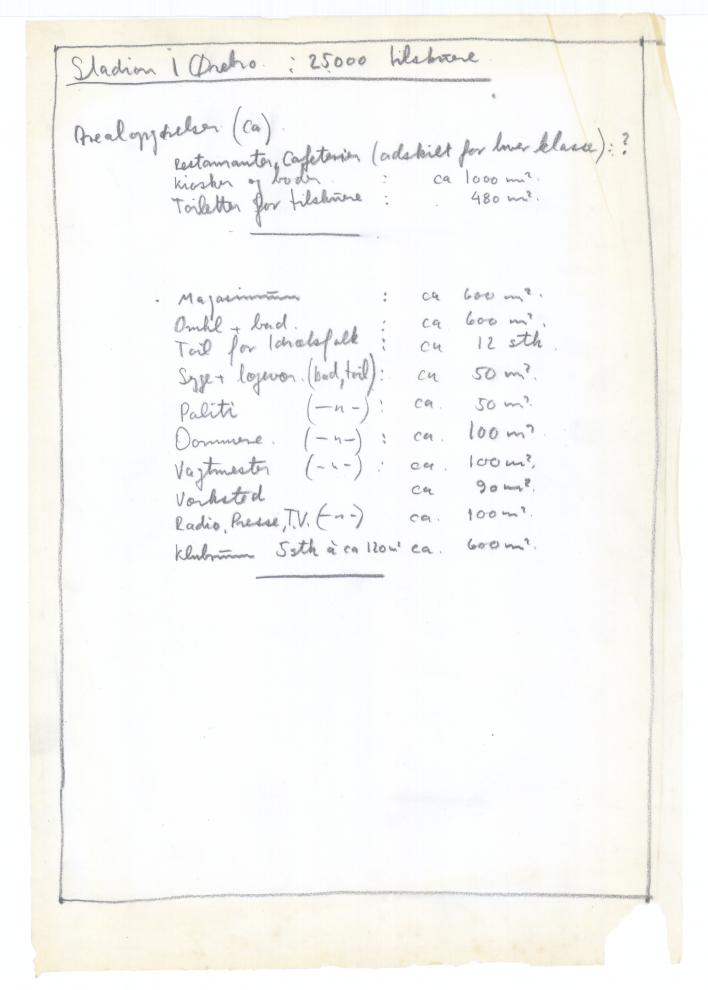 Stadion i Ørebro : 25000 tilskuere
Arealopgivelser (ca)
Restauranter, Cafeterier (adskilt for hver klasse) : ?
Kiosker og boder : ca 1000 m².
Toiletter for tilskuere : 480 m².
Magasinrum : ca 600 m².
Omkl + bad. : ca 600 m².
Toil for Idrætsfolk : ca 12 stk.
Syge + lægevær. (bad, toil) : ca 50 m².
Politi (—"—) : ca. 50 m².
Dommere. (—"—) : ca. 100 m²
Vagtmester (—"—) : ca. 100 m².
Værksted ca 90 m².
Radio, Presse, T.V. (—"—) ca. 100 m².
Klubrum 5 stk à ca 120 m² ca. 600 m².